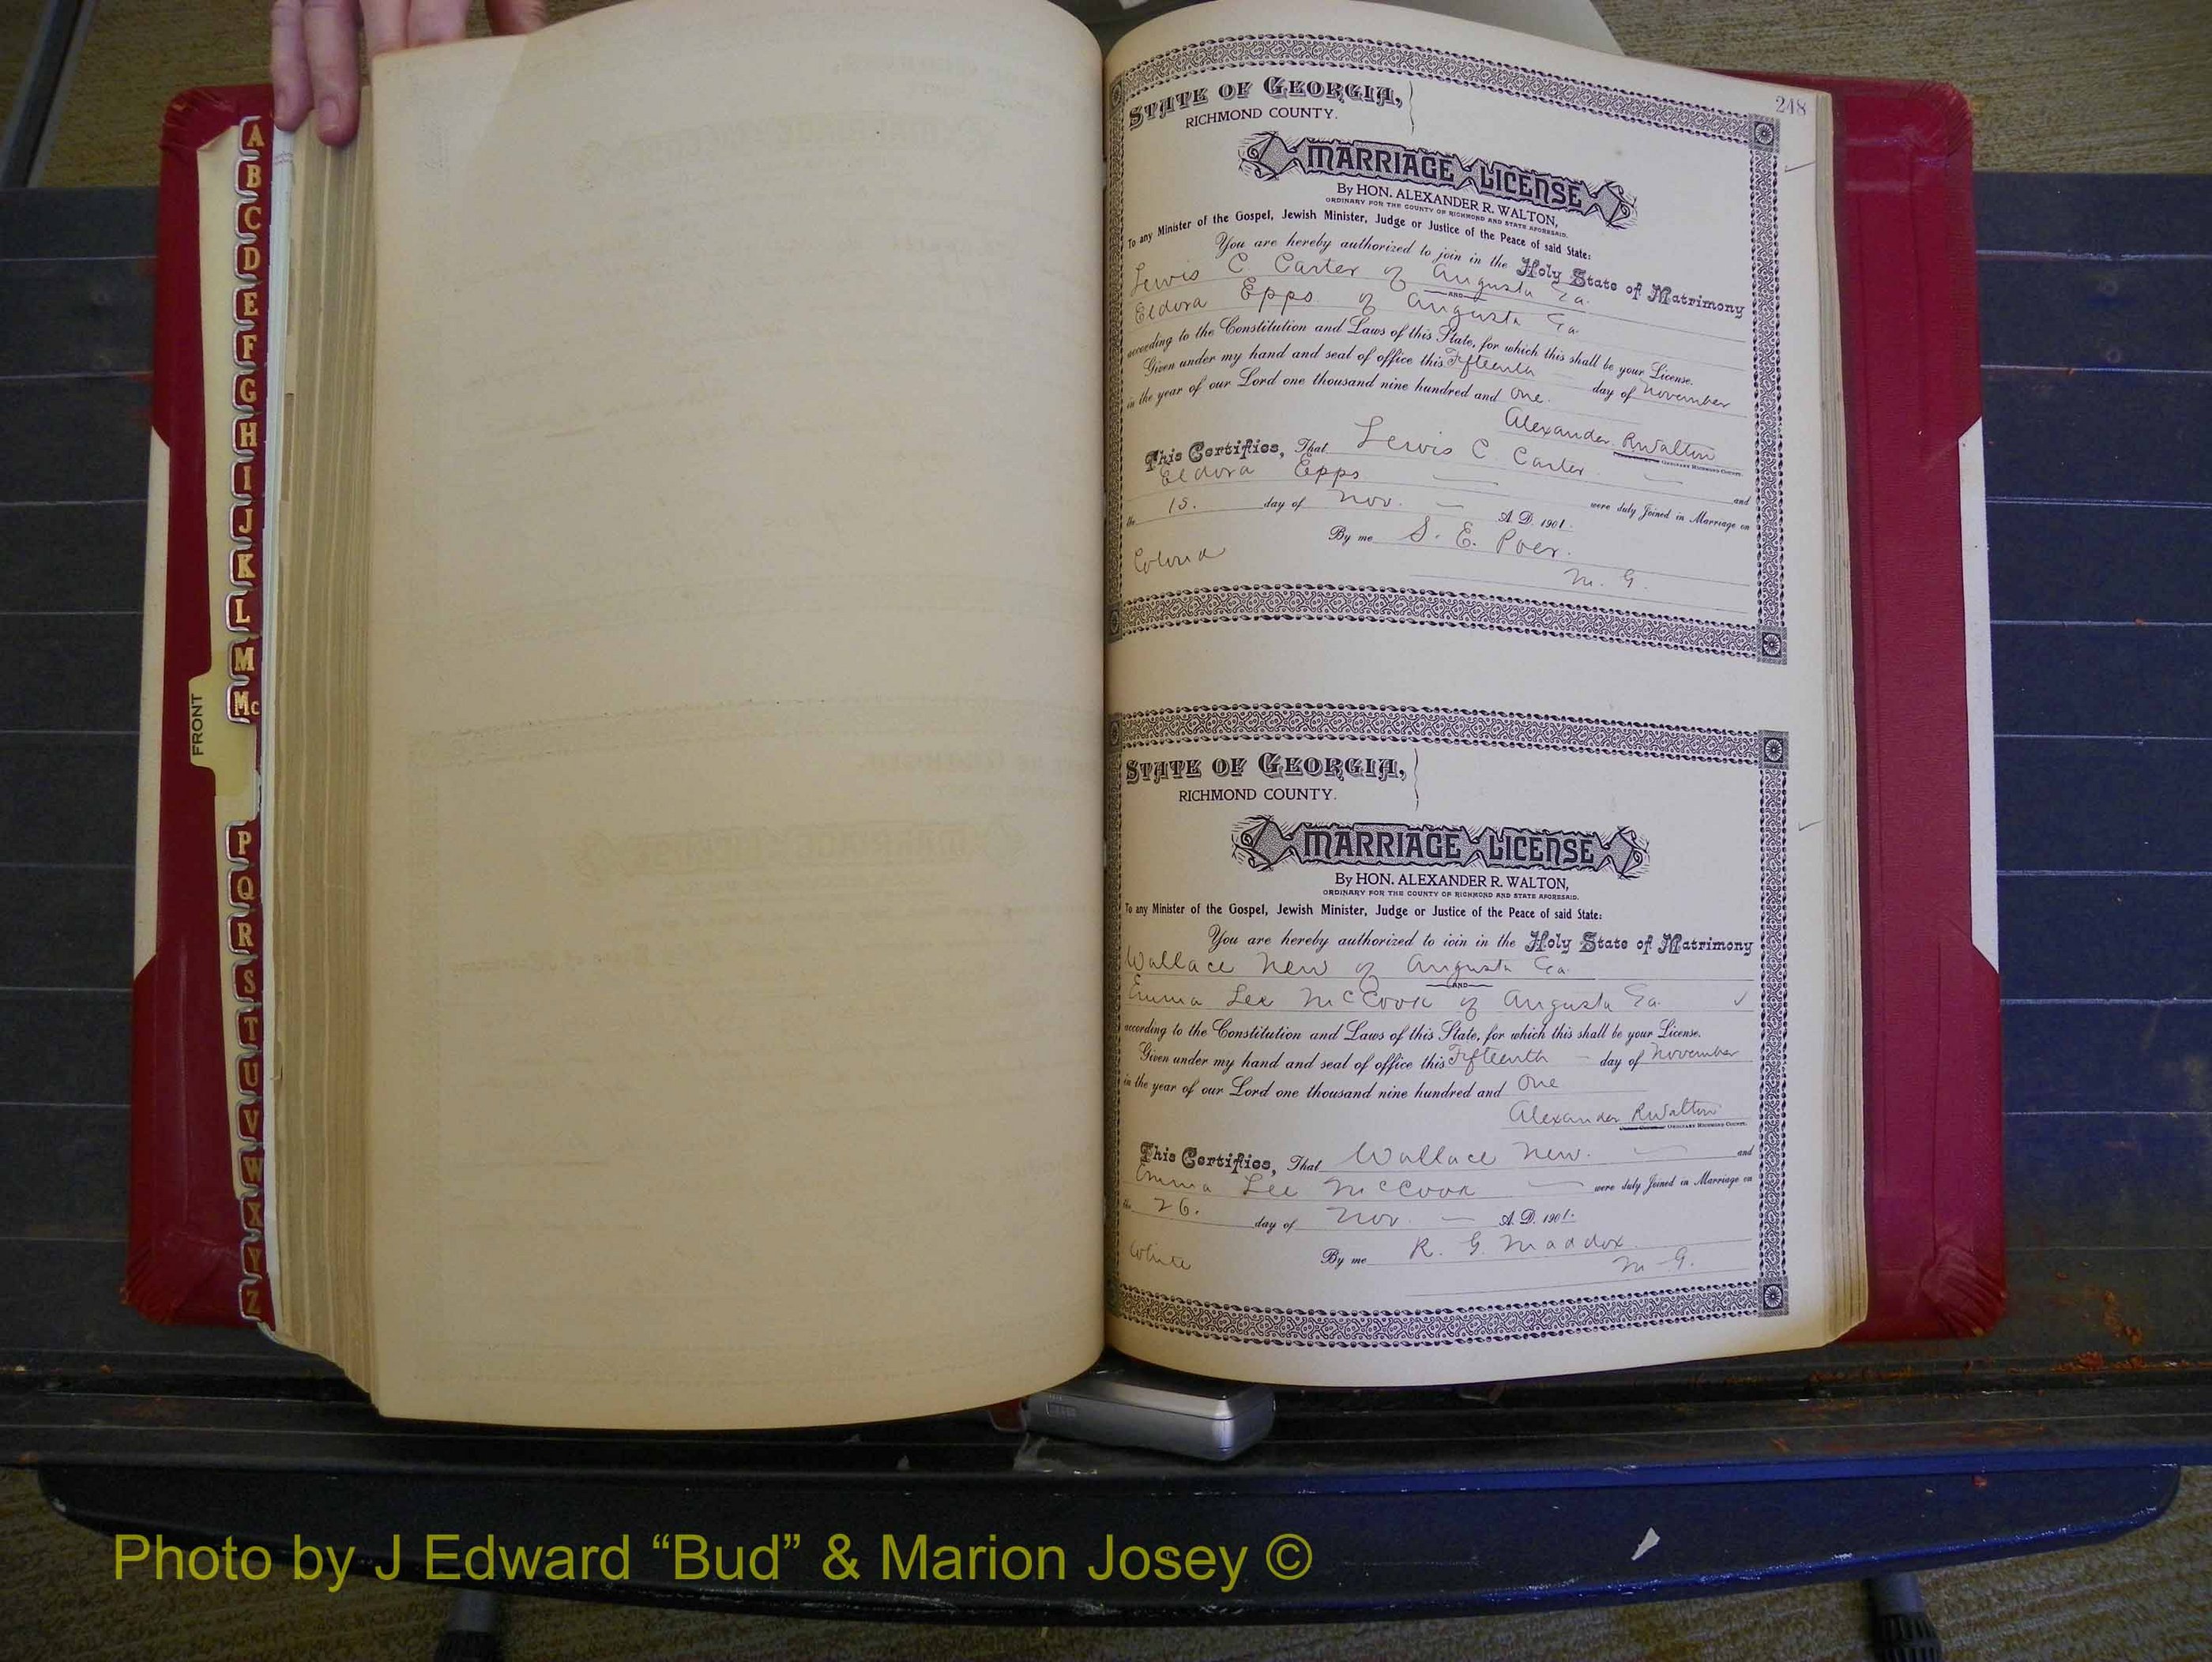 A
B
C
D
E
F
G
H
I
J
K
L
M
Mc
FRONT
P
Q
R
S
T
U
V
W
X
Y
Z
248
STATE OF GEORGIA,
RICHMOND COUNTY.
MARRIAGE LICENSE
By HON. ALEXANDER R. WALTON,
ORDINARY FOR THE COUNTY OF RICHMOND AND STATE AFORESAID.
To any Minister of the Gospel, Jewish Minister, Judge or Justice of the Peace of said State:
You are hereby authorized to join in the Holy State of Matrimony
Lewis C Carter of Augusta Ga.
AND
Eldora Epps of Augusta Ga
according to the Constitution and Laws of this State, for which this shall be your License.
Given under my hand and seal of office this Fifteenth day of November
in the year of our Lord one thousand nine hundred and One.
Alexander R Walton
ORDINARY RICHMOND COUNTY.
This Certifies, That Lewis C Carter and
Eldora Epps were duly Joined in Marriage on
the 15. day of Nov. A. D. 1901.
By me S. E. Poer.
Colored M. G.
STATE OF GEORGIA,
RICHMOND COUNTY.
MARRIAGE LICENSE
By HON. ALEXANDER R. WALTON,
ORDINARY FOR THE COUNTY OF RICHMOND AND STATE AFORESAID.
To any Minister of the Gospel, Jewish Minister, Judge or Justice of the Peace of said State:
You are hereby authorized to join in the Holy State of Matrimony
Wallace New of Augusta Ga.
AND
Emma Lee McCook of Augusta Ga.
according to the Constitution and Laws of this State, for which this shall be your License.
Given under my hand and seal of office this Fifteenth day of November
in the year of our Lord one thousand nine hundred and One
Alexander R Walton
ORDINARY RICHMOND COUNTY.
This Certifies, That Wallace New. and
Emma Lee McCook were duly Joined in Marriage on
the 26. day of Nov. A. D. 1901.
White By me R. G. Maddox
M. G.
Photo by J Edward “Bud” & Marion Josey ©